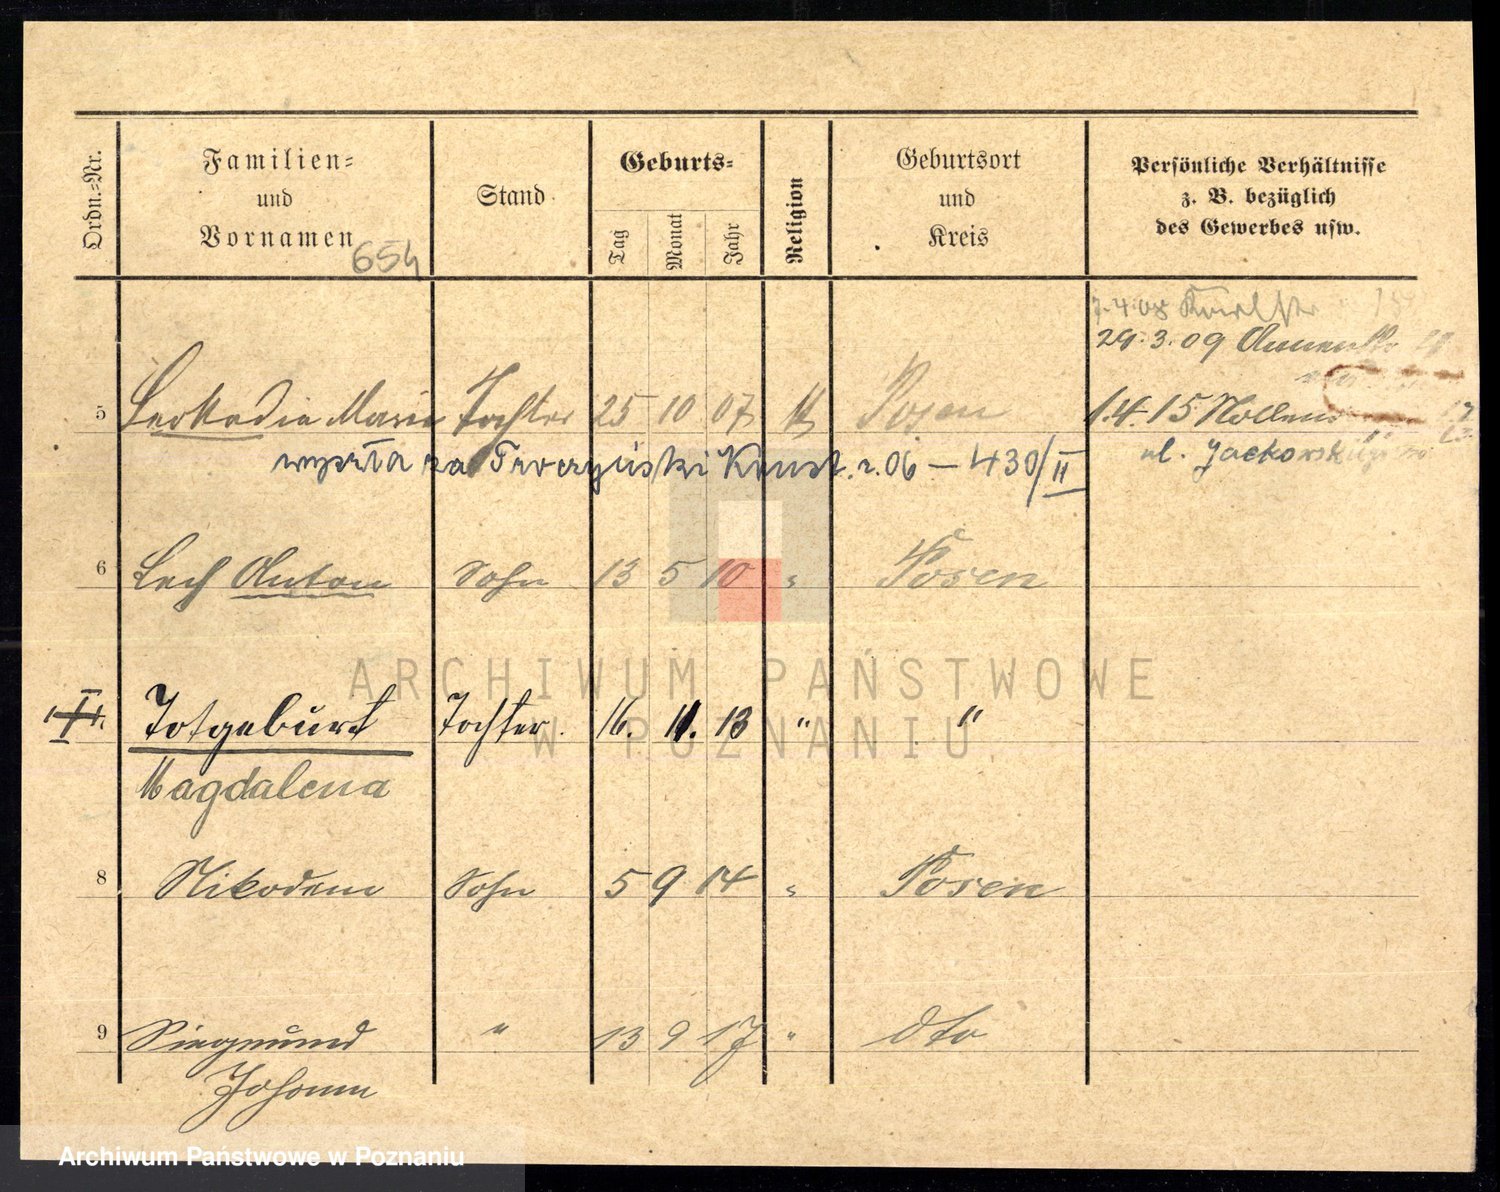 Ordn.=Nr.
Familien=
und
Vornamen
654
Stand
Geburts=
Tag
Monat
Jahr
Religion
Geburtsort
und
Kreis
Persönliche Verhältnisse
z. B. bezüglich
des Gewerbes usw.
7.4.08
29.3.09
5 Leokadie Marie Tochter 25 10 07 Posen 1.4.15
wyszła za Kunst. r. 06 — 430/II ul. Jackowski
6 Lech Anton Sohn 13 5 10 " Posen
Totgeburt Tochter. 16. 11. 13 " "
Magdalena
8 Nikodem Sohn 5 9 14 " Posen
9 Siegmund " 13 9 17 " dto
Johann
ARCHIWUM PAŃSTWOWE
W POZNANIU
Archiwum Państwowe w Poznaniu